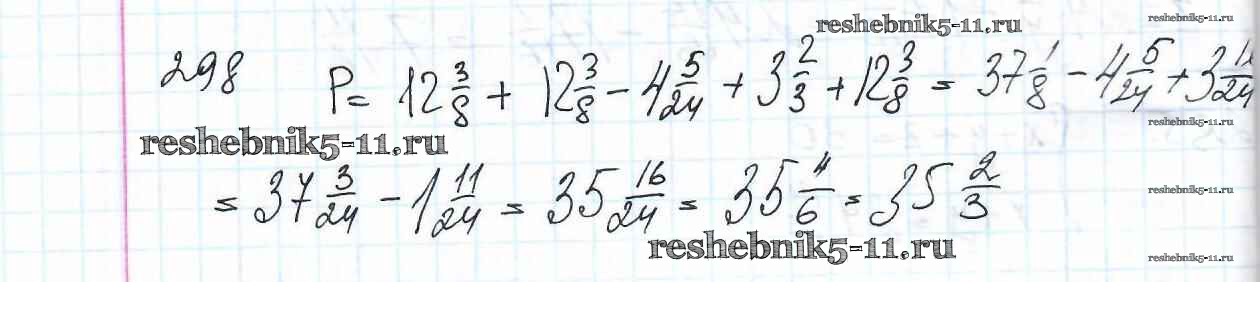 reshebnik5-11.ru reshebnik5-11.ru
298 P = 12 3/8 + 12 3/8 - 4 5/24 + 3 2/3 + 12 3/8 = 37 1/8 - 4 5/24 + 3
reshebnik5-11.ru
reshebnik5-11.ru
= 37 3/24 - 1 11/24 = 35 16/24 = 35 4/6 = 35 2/3
reshebnik5-11.ru
reshebnik5-11.ru
reshebnik5-11.ru